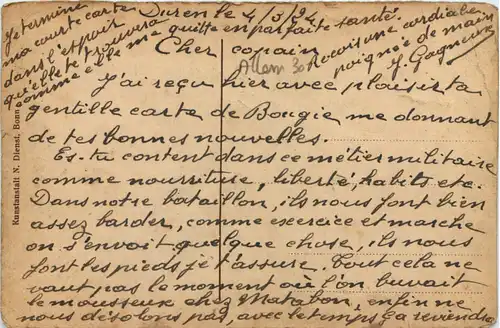 Duren le 4/3/24.
Cher copain
J'ai reçu hier avec plaisir ta
gentille carte de Bougie me donnant
de tes bonnes nouvelles.
Es-tu content dans ce métier militaire
comme nourriture, liberté, habits etc.
Dans notre bataillon, ils nous font bien
assez barder, comme exercice et marche
on s'envoit quelque chose, ils nous
font les pieds je t'assure. Tout cela ne
vaut pas le moment où l'on buvait
le mousseux chez Matabon, enfin ne
nous désolons pas, avec le temps ça reviendra
Je termine
ma courte carte
dans l'espoir
qu'elle te trouvera
comme elle me quitte en parfaite santé.
Reçois une cordiale
poignée de main
J. Gagneux
Allem 30
Kunstanstalt N. Dirnet, Bonn